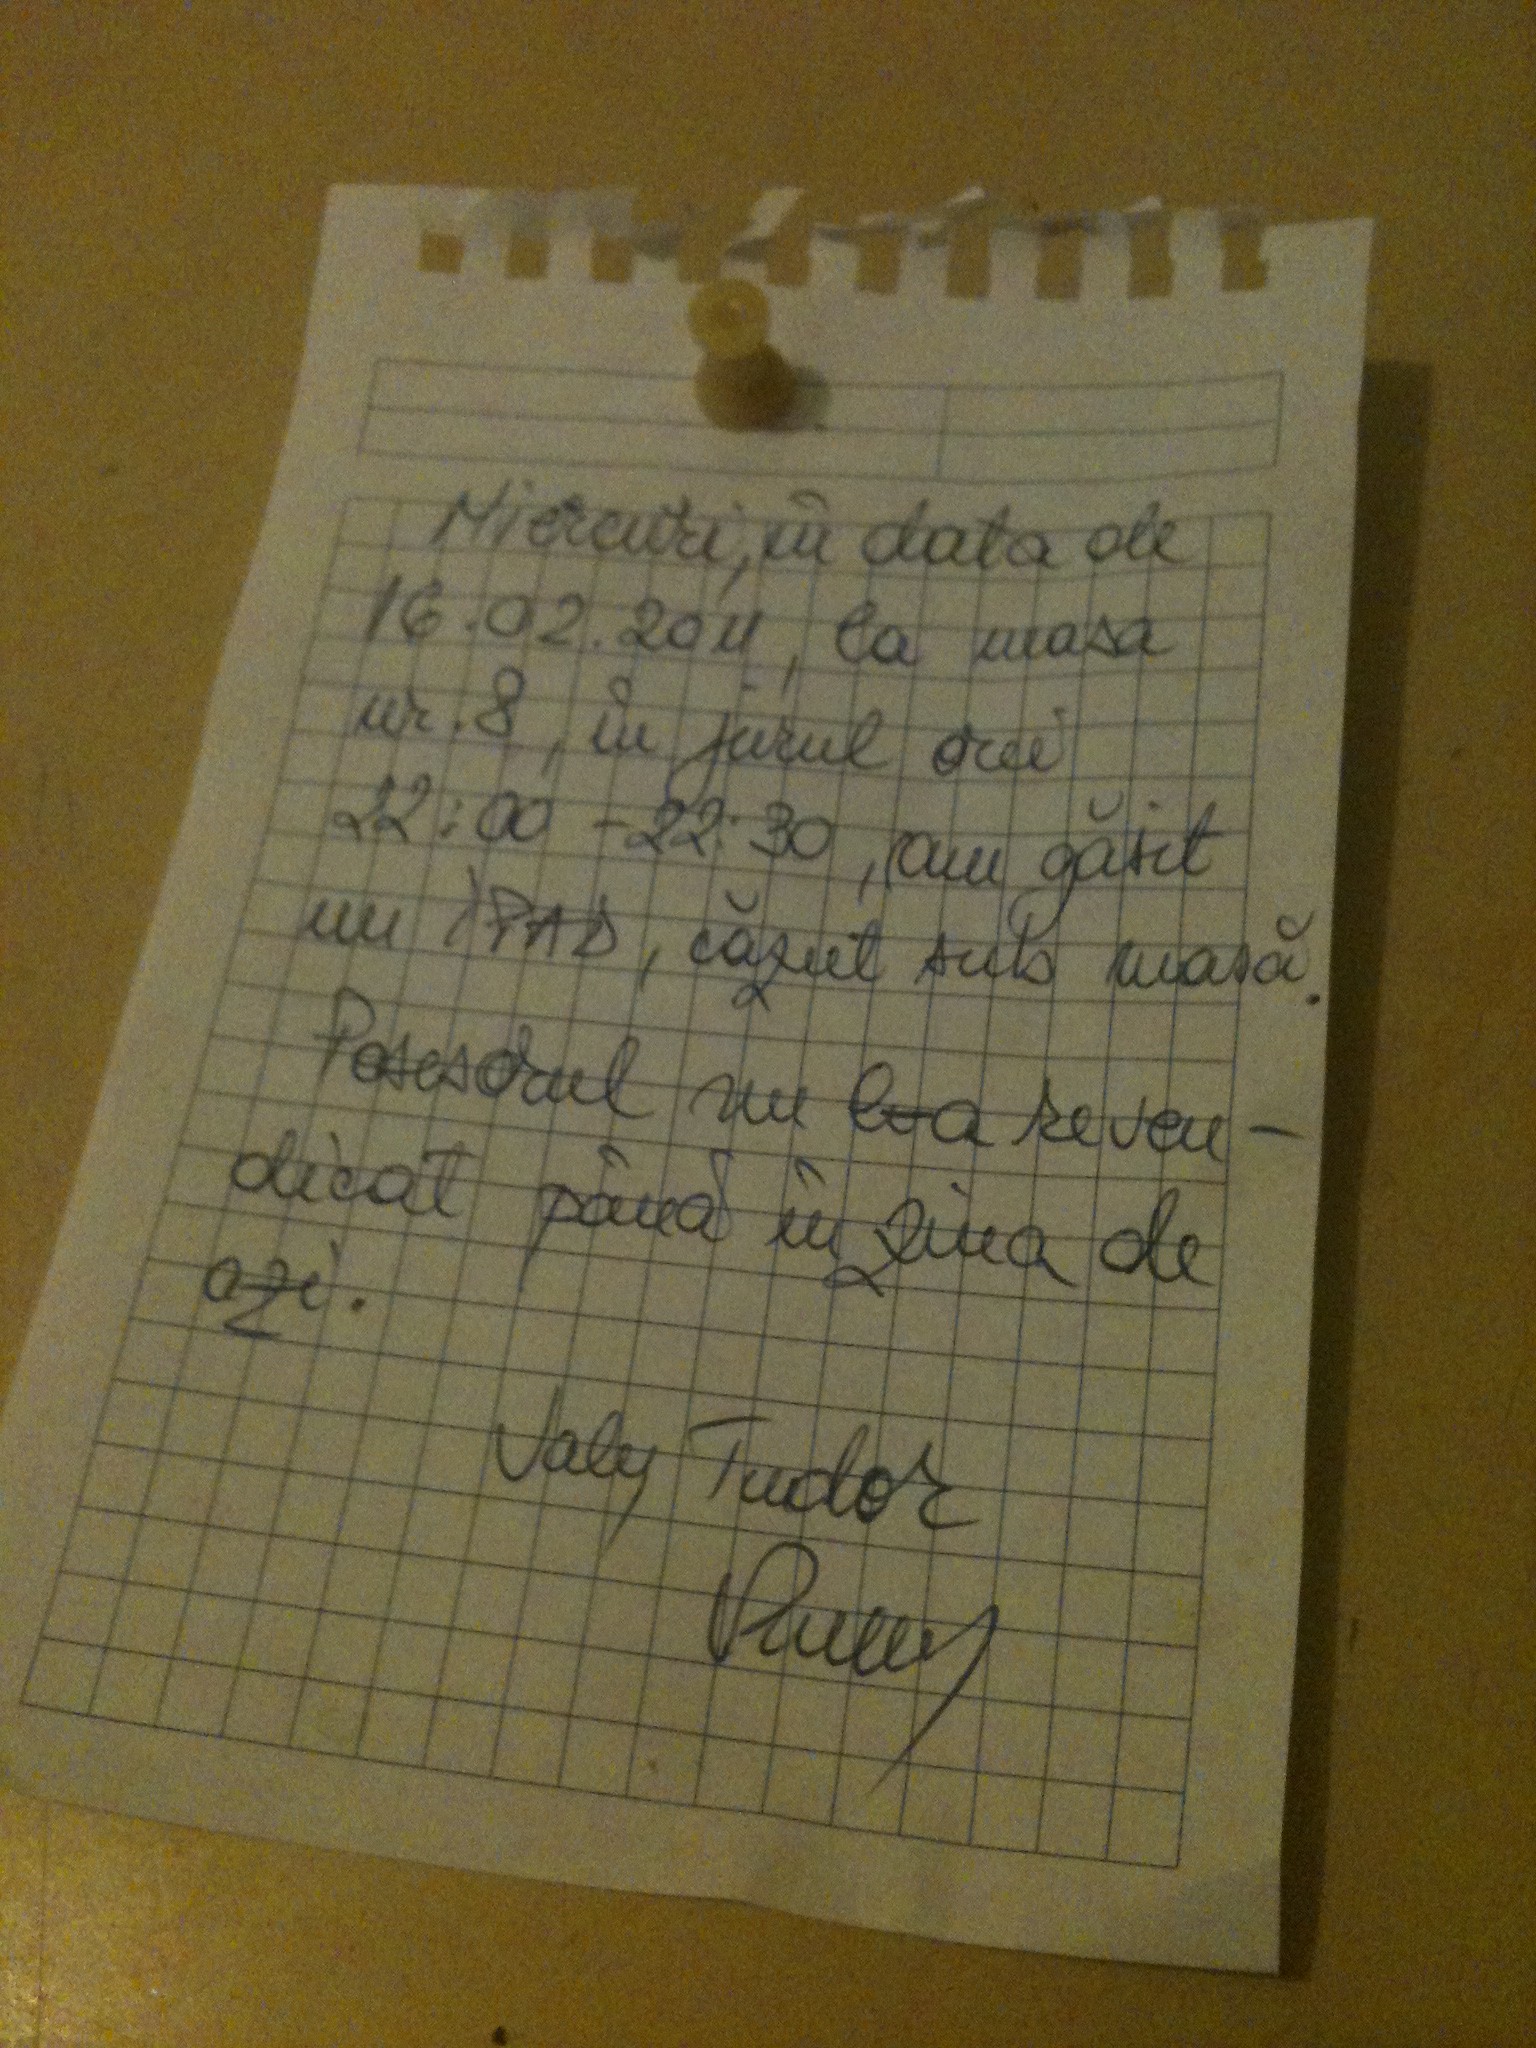 Miercuri, în data de
16.02.2011, la masa
nr. 8, în jurul orei
22:00 - 22:30, am găsit
un IPAD, căzut sub masă.
Posesorul nu l-a reven-
dicat până în ziua de
azi.
Valy Tudor